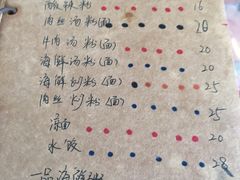 酸辣粉 16
肉丝汤粉(面) 20
牛肉汤粉(面) 20
海鲜汤粉(面) 20
海鲜炒粉(面) 25
肉丝炒粉(面) 25
汤面 20
水饺 28
一品海鲜粥